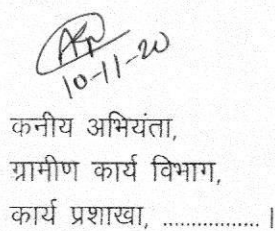 10-11-20
कनीय अभियंता,
ग्रामीण कार्य विभाग,
कार्य प्रशाखा, ................. |